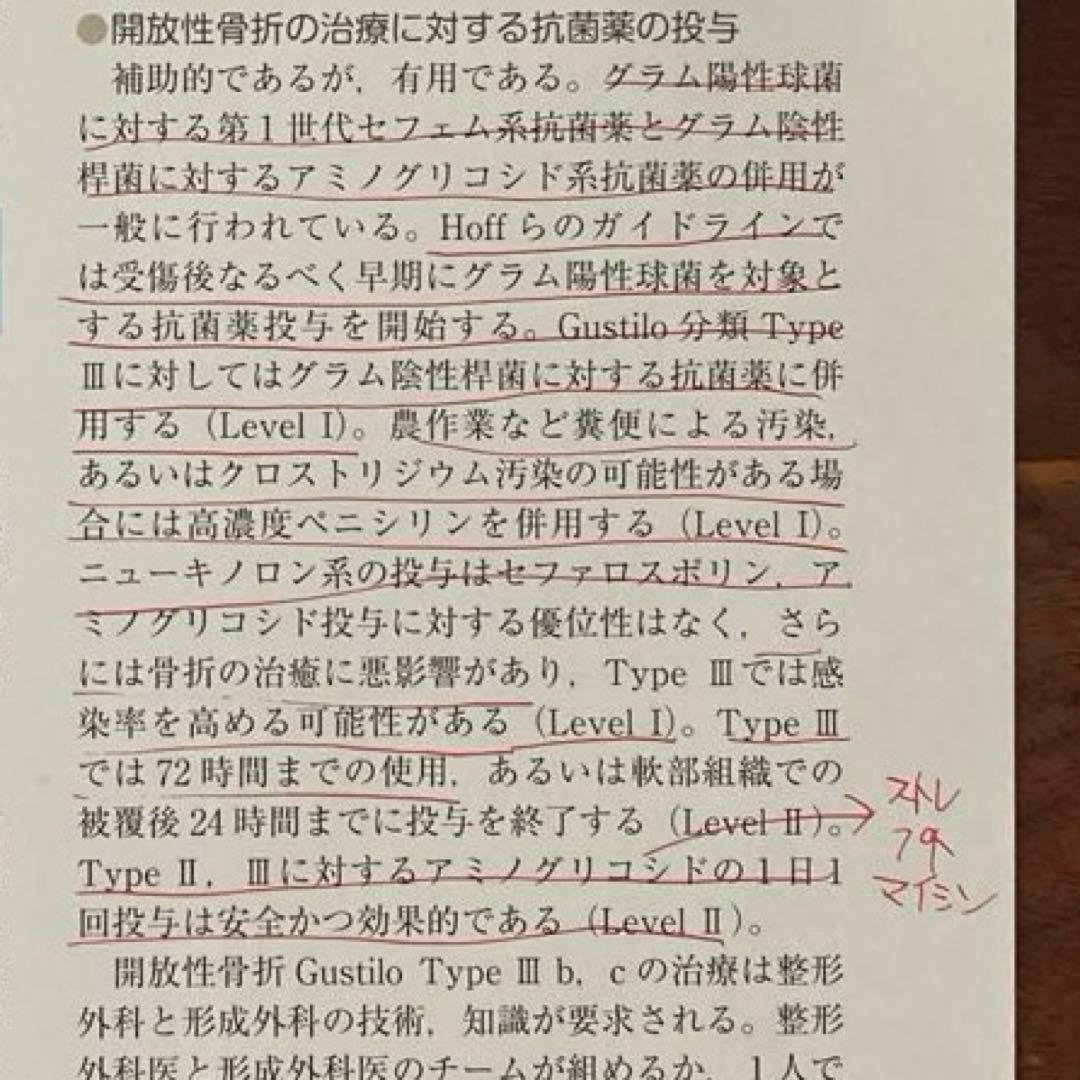 ●開放性骨折の治療に対する抗菌薬の投与
補助的であるが，有用である。グラム陽性球菌
に対する第1世代セフェム系抗菌薬とグラム陰性
桿菌に対するアミノグリコシド系抗菌薬の併用が
一般に行われている。Hoffらのガイドラインで
は受傷後なるべく早期にグラム陽性球菌を対象と
する抗菌薬投与を開始する。Gustilo分類Type
Ⅲに対してはグラム陰性桿菌に対する抗菌薬に併
用する（Level Ⅰ）。農作業など糞便による汚染，
あるいはクロストリジウム汚染の可能性がある場
合には高濃度ペニシリンを併用する（Level Ⅰ）。
ニューキノロン系の投与はセファロスポリン，ア
ミノグリコシド投与に対する優位性はなく，さら
には骨折の治癒に悪影響があり，Type Ⅲでは感
染率を高める可能性がある（Level Ⅰ）。Type Ⅲ
では72時間までの使用，あるいは軟部組織での
被覆後24時間までに投与を終了する（Level Ⅱ）。
Type Ⅱ，Ⅲに対するアミノグリコシドの1日1
回投与は安全かつ効果的である（Level Ⅱ）。
ストレ
プト
マイシン
開放性骨折Gustilo Type Ⅲ b，cの治療は整形
外科と形成外科の技術，知識が要求される。整形
外科医と形成外科医のチームが組めるか，1人で